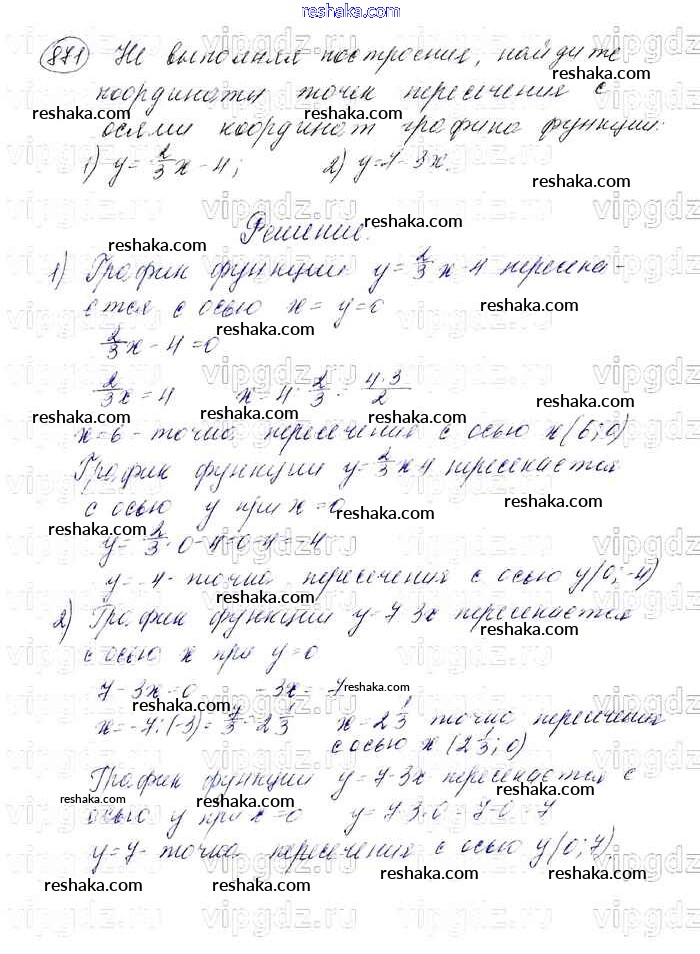 reshaka.com
871 Не выполняя построения, найдите
координаты точек пересечения с
осями координат графика функции:
1) y = 2/3 x - 4; 2) y = 7 - 3x.
Решение.
1) График функции y = 2/3 x - 4 пересека-
ется с осью x = y = 0
2/3 x - 4 = 0
2/3 x = 4 x = 4 : 2/3 · 4·3/2
x = 6 - точка пересечения с осью x (6; 0)
График функции y = 2/3 x 4 пересекается
с осью y при x = 0
y = 2/3 · 0 - 4 = 0 - 4 = -4
y = -4 - точка пересечения с осью y (0; -4)
2) График функции y = 7 3x пересекается
с осью x при y = 0
7 - 3x = 0 -3x = -7
x = -7 : (-3) = 7/3 = 2 1/3 x = 2 1/3 точка пересечения
с осью x (2 1/3; 0)
График функции y = 7 - 3x пересекается с
осью y при x = 0 y = 7 - 3·0 = 7 - 0 = 7
y = 7 - точка пересечения с осью y (0; 7)